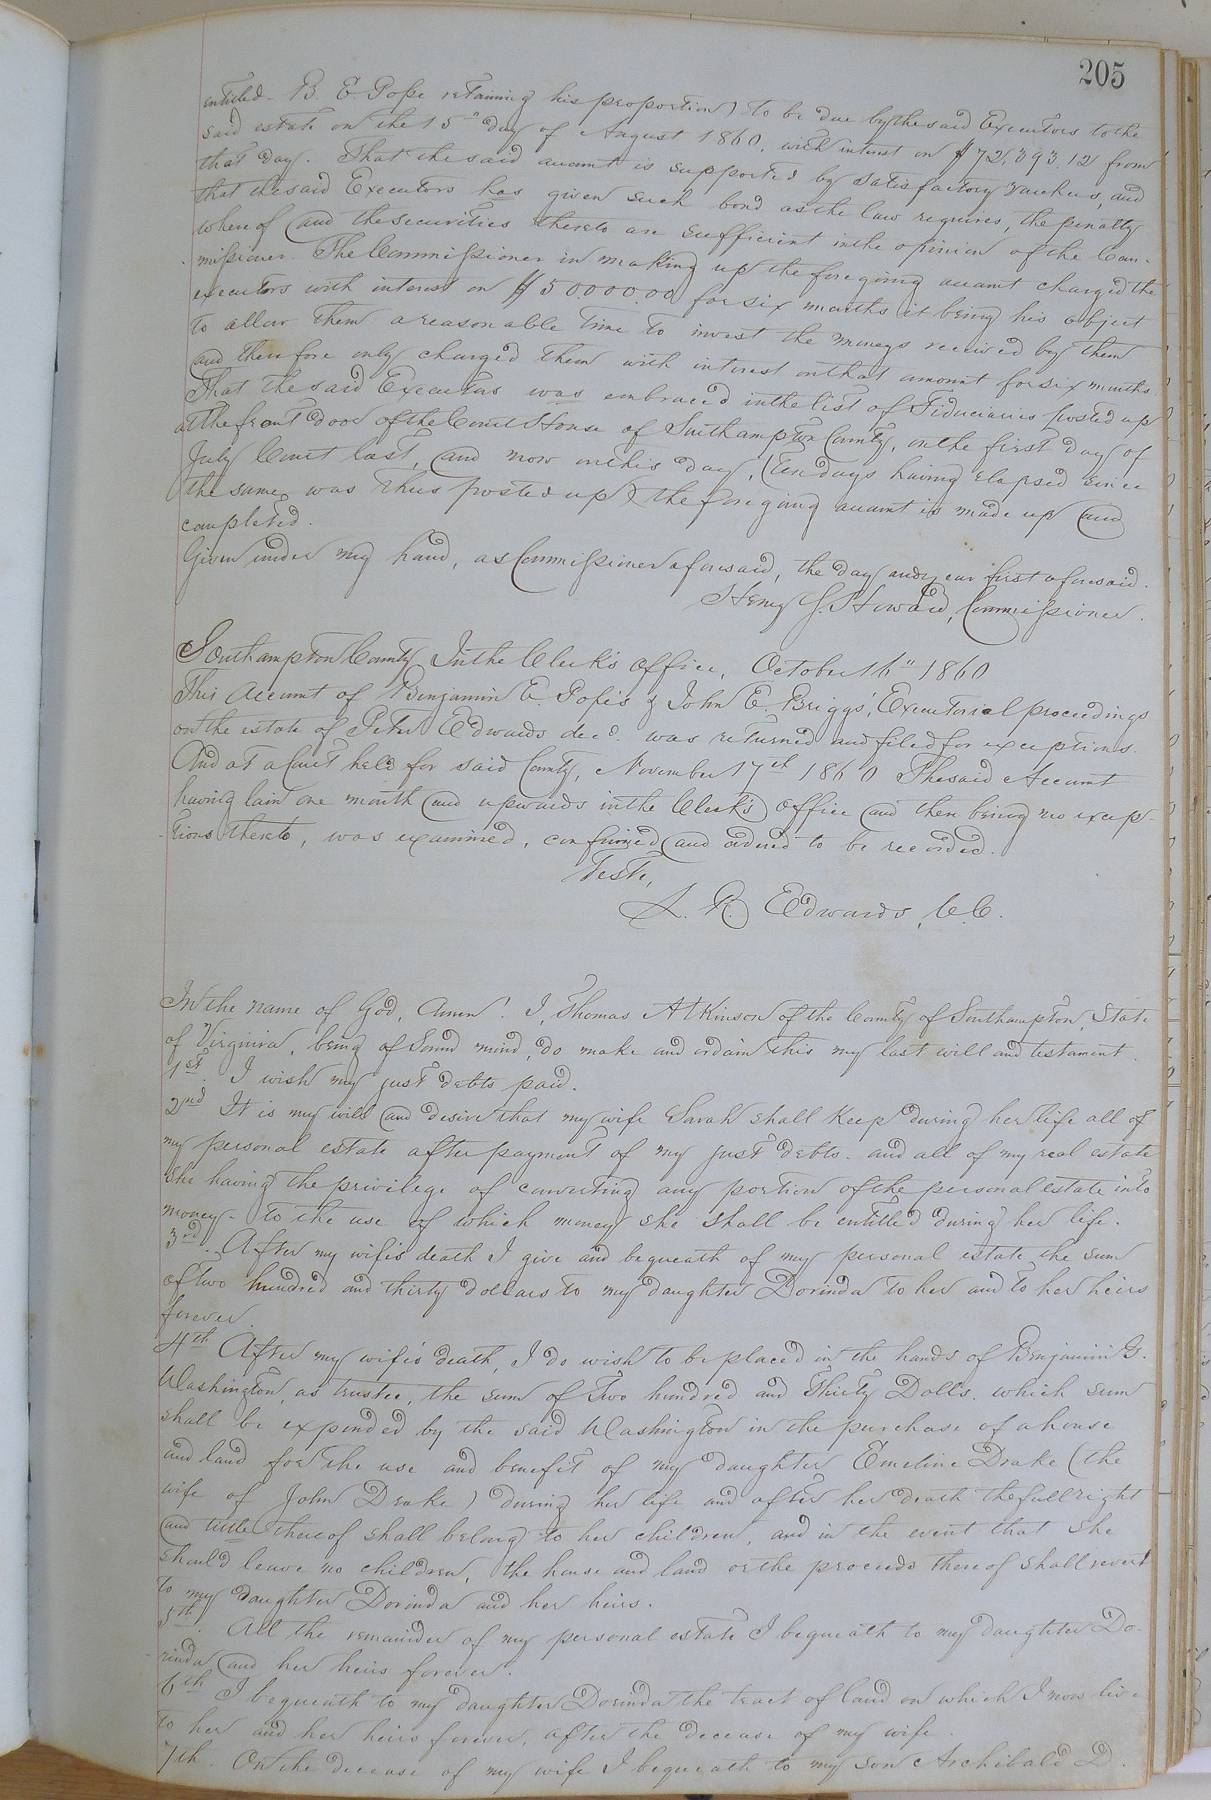 205
entitled. B. E. Pope retaining his proportion) to be due by the said Executors to the
said estate on the 15th day of August 1860, with interest on $72,393.12 from
that day. That the said account is supported by satisfactory vouchers, and
that the said Executors has given such bond as the law requires, the penalty
whereof (and the securities thereto are sufficient in the opinion of the Com-
missioner. The Commissioner in making up the foregoing account charged the
executors with interest on $50000.00 for six months it being his object
to allow them a reasonable time to invest the moneys received by them
and therefore only charged them with interest on that amount for six months.
That the said Executors was embraced in the list of Fiduciaries posted up
at the front door of the Court House of Southampton County, on the first day of
July Court last, and now on this day, (ten days having elapsed since
the same was thus posted up) the foregoing account is made up and
completed.
Given under my hand, as Commissioner aforesaid, the day and year first aforesaid.
Henry J. Howard, Commissioner.
Southampton County In the Clerk's office, October 16" 1860
This Account of Benjamin E. Pope's & John E. Briggs', Executorial proceedings
on the estate of Peter Edwards decd. was returned and filed for exceptions.
And at a Court held for said County, November 17th 1860 The said Account
having lain one month and upwards in the Clerk's office and then being no excep-
tions thereto, was examined, confirmed and ordered to be recorded.
Teste,
L. R. Edwards, C.C.
In the name of God, Amen! I, Thomas Atkinson of the County of Southampton, State
of Virginira, being of Sound mind, do make and ordain this my last will and testament.
1st. I wish my just debts paid.
2nd It is my will and desire that my wife Sarah shall Keep during her life all of
my personal estate after payment of my just debts. and all of my real estate
She having the privilege of converting any portion of the personal estate into
money - to the use of which money she shall be entitled during her life.
3rd. After my wife's death I give and bequeath of my personal estate the sum
of two hundred and thirty dollars to my daughter Dorinda to her and to her heirs
forever.
4th After my wife's death, I do wish to be placed in the hands of Benjamin G.
Washington, as trustee, the sum of Two hundred and Thirty Dolls. which sum
shall be expended by the said Washington in the purchase of a house
and land for the use and benefit of my daughter Emeline Drake (the
wife of John Drake) during her life and after her death the full right
and title thereof shall belong to her children, and in the event that she
should leave no children, the house and land or the proceeds thereof shall revert
to my daughter Dorinda and her heirs.
5th. All the remainder of my personal estate I bequeath to my daughter Do-
rinda and her heirs forever.
6th I bequeath to my daughter Dorinda the tract of land on which I now live
to her and her heirs forever, after the decease of my wife.
7th. On the decease of my wife I bequeath to my son Archibald D.